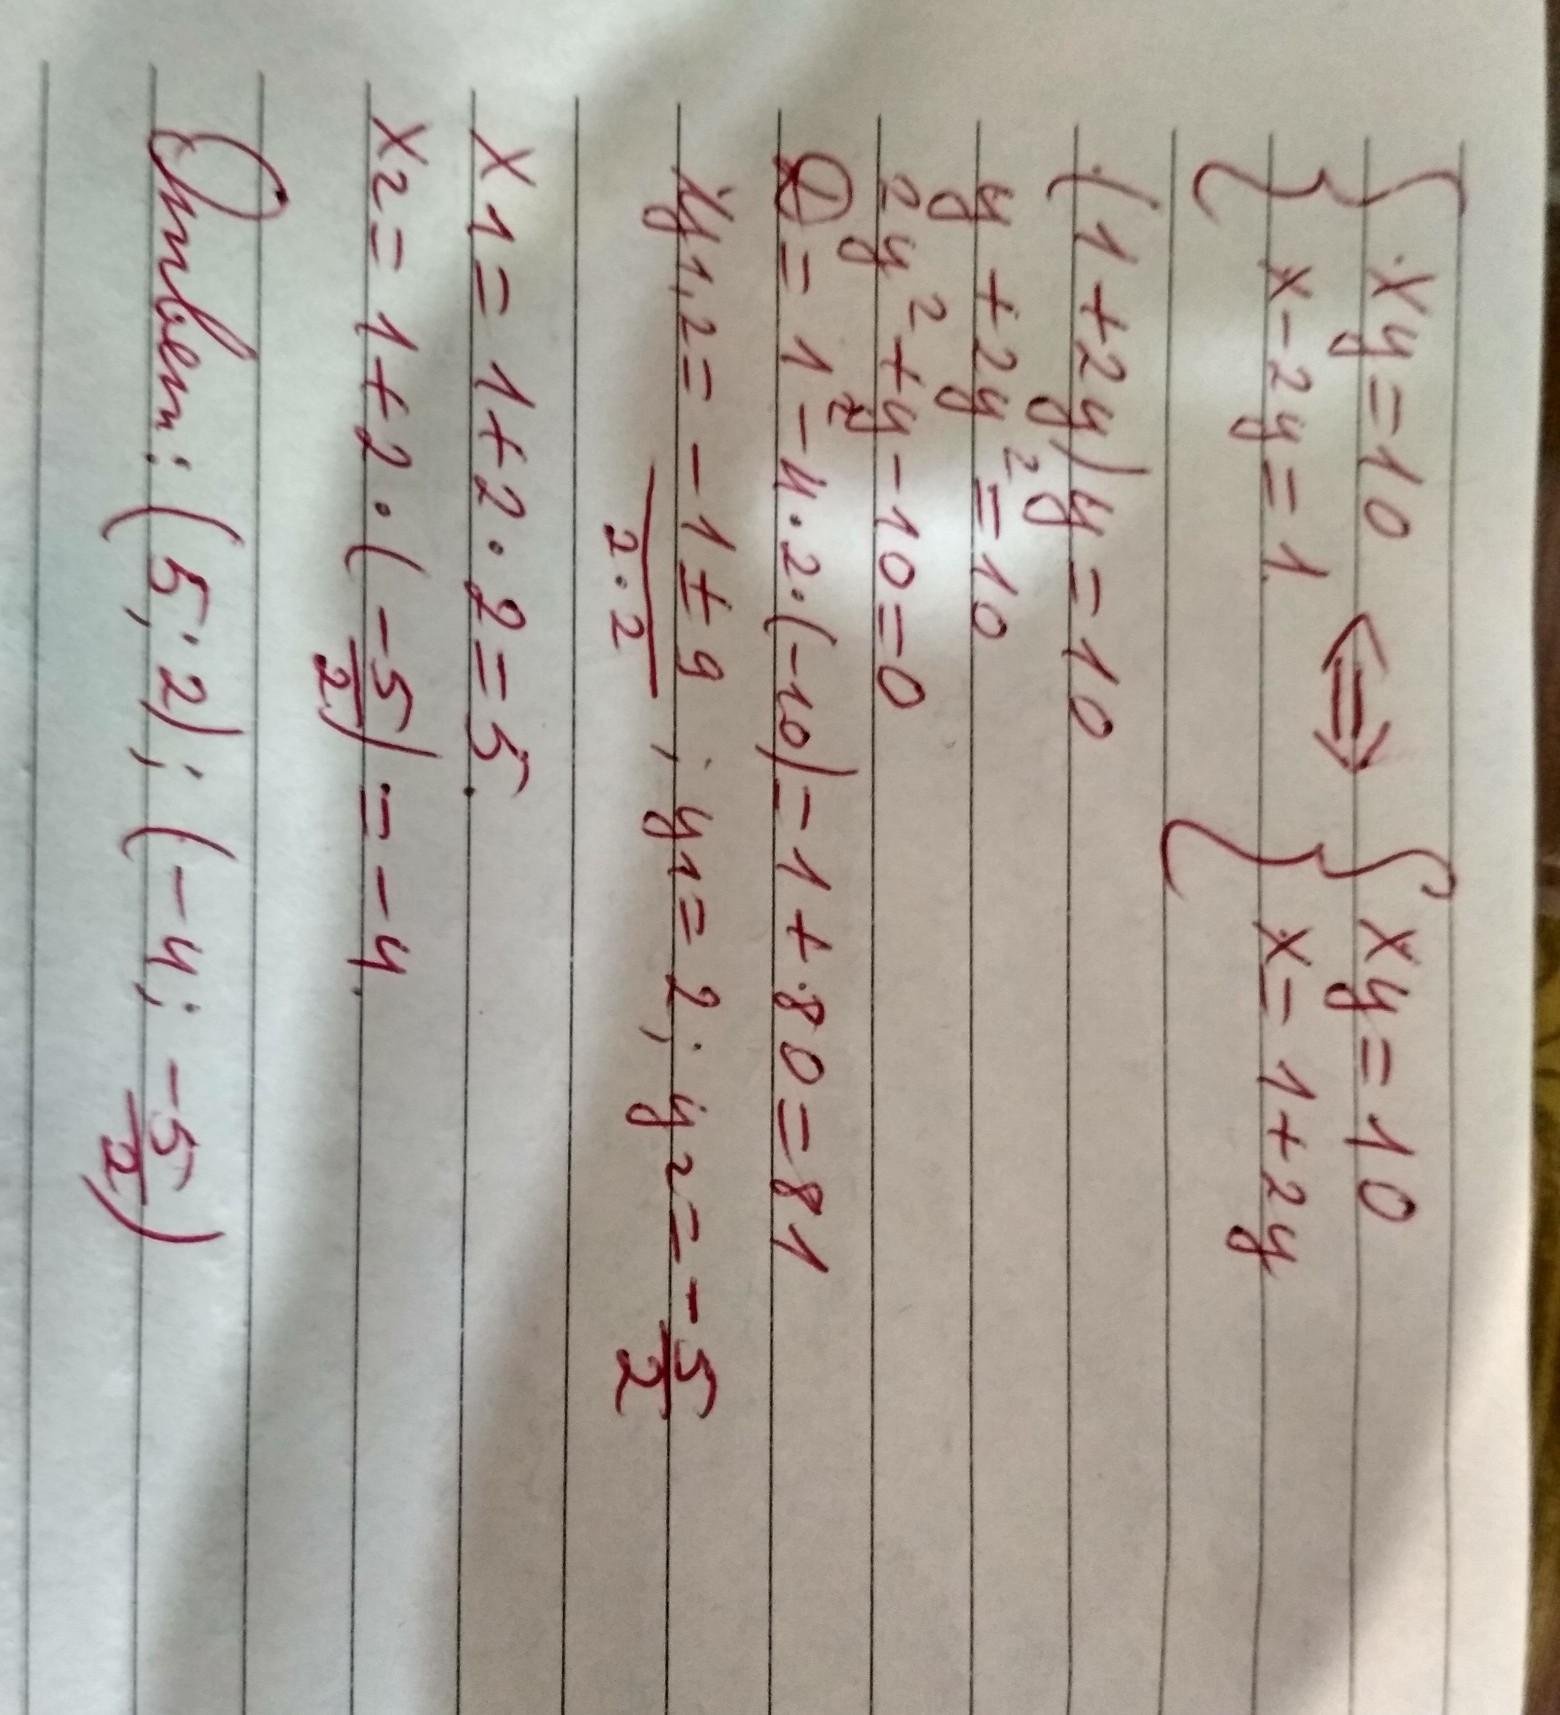 { xy = 10
{ x - 2y = 1 ⇔ { xy = 10
{ x = 1 + 2y
(1 + 2y)y = 10
y + 2y² = 10
2y² + y - 10 = 0
D = 1² - 4 · 2 · (-10) = 1 + 80 = 81
y1,2 = (-1 ± 9)/(2 · 2) ; y1 = 2; y2 = -5/2
x1 = 1 + 2 · 2 = 5.
x2 = 1 + 2 · (-5/2) = -4.
Ответ: (5; 2); (-4; -5/2)